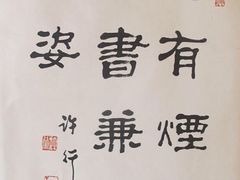 有煙
書兼
姿
許行